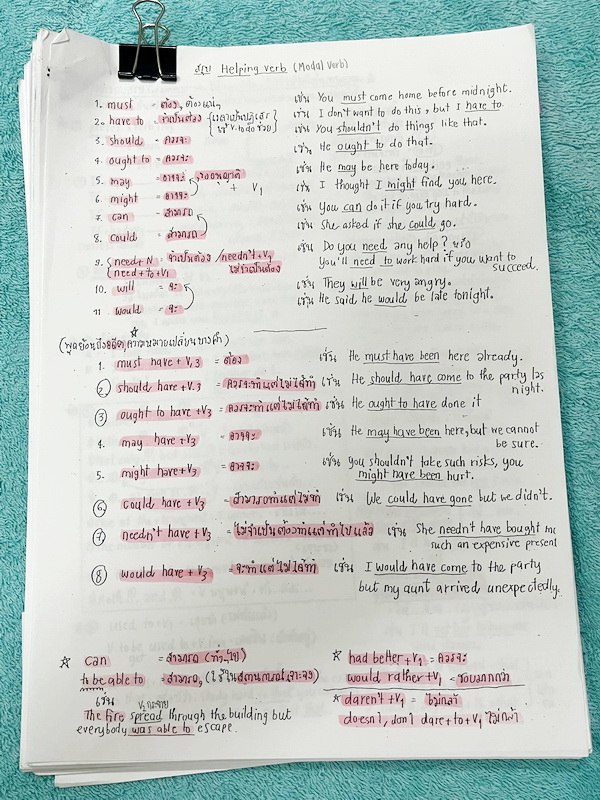 สรุป Helping verb (Modal Verb)
1. must = ต้อง, ต้องแน่ๆ เช่น You must come home before midnight.
2. have to = จำเป็นต้อง (เวลาเป็นปฏิเสธ ใช้ V. to do ช่วย) เช่น I don't want to do this, but I have to.
3. should = ควรจะ เช่น You shouldn't do things like that.
4. ought to = ควรจะ เช่น He ought to do that.
5. may = อาจจะ, ขออนุญาต เช่น He may be here today.
6. might = อาจจะ + V1 เช่น I thought I might find you here.
7. can = สามารถ เช่น You can do it if you try hard.
8. could = สามารถ เช่น She asked if she could go.
9. need + N = จำเป็นต้อง / needn't + V1 เช่น Do you need any help? หรือ
need + to + V1 ไม่จำเป็นต้อง You'll need to work hard if you want to succeed.
10. will = จะ เช่น They will be very angry.
11. would = จะ เช่น He said he would be late tonight.
(พูดย้อนถึงอดีต, ความหมายเปลี่ยนบางคำ)
1. must have + V.3 = ต้อง เช่น He must have been here already.
2 should have + V.3 = ควรจะทำแต่ไม่ได้ทำ เช่น He should have come to the party las
night.
3 ought to have + V3 = ควรจะทำแต่ไม่ได้ทำ เช่น He ought to have done it
4. may have + V3 = อาจจะ เช่น He may have been here, but we cannot
be sure.
5. might have + V3 = อาจจะ เช่น you shouldn't take such risks, you
might have been hurt.
6 could have + V3 = สามารถทำแต่ไม่ทำ เช่น We could have gone but we didn't.
7 needn't have + V3 = ไม่จำเป็นต้องทำแต่ทำไปแล้ว เช่น She needn't have bought me
such an expensive present
8 would have + V3 = จะทำแต่ไม่ได้ทำ เช่น I would have come to the party
but my aunt arrived unexpectedly.
☆ can = สามารถ (ทั่วไป)
to be able to = สามารถ, (ใช้ในสถานการณ์เจาะจง)
เช่น V2 กระจาย
The fire spread through the building but
everybody was able to escape.
☆ had better + V1 = ควรจะ
would rather + V1 = ชอบมากกว่า
☆ daren't + V1 = ไม่กล้า
doesn't, don't dare + to + V1 ไม่กล้า